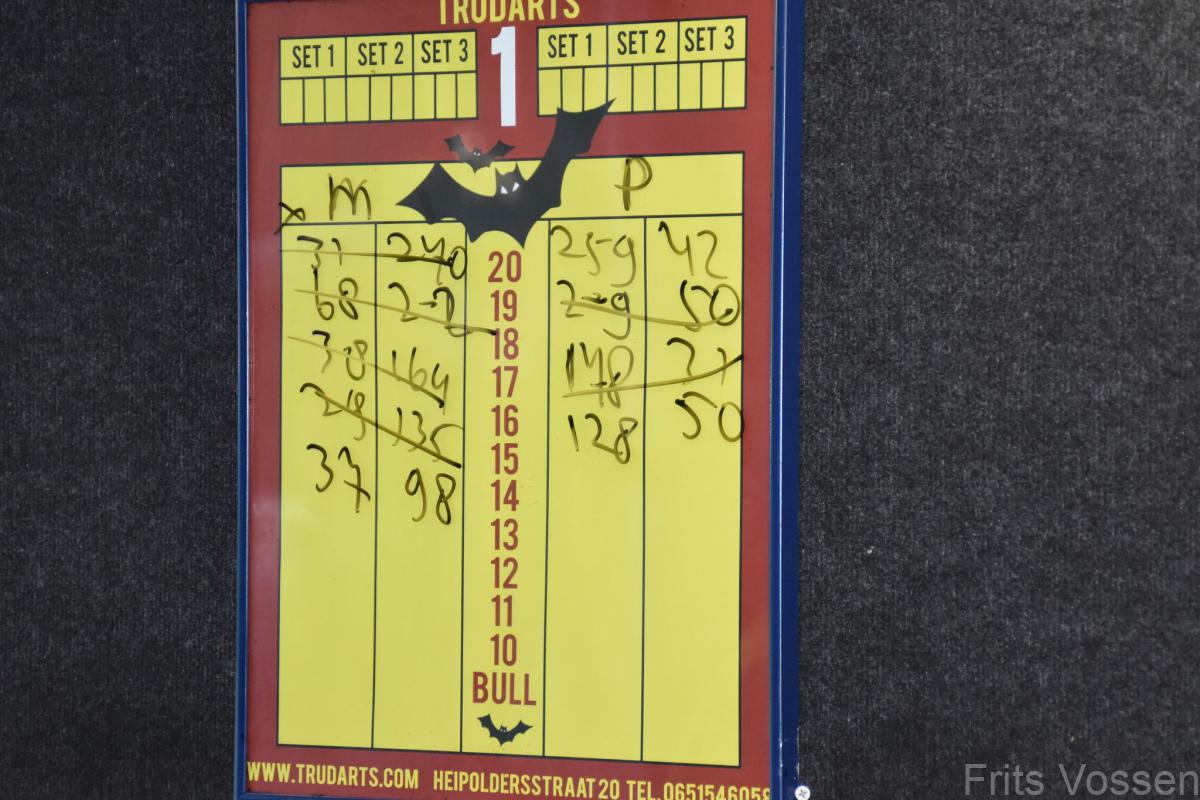 TRUDARTS
SET 1 SET 2 SET 3
1
SET 1 SET 2 SET 3
x m
P
31 240 20 259 42
68 19 209 50
38 164 18 148
29 135 17 128 50
37 98 16
15
14
13
12
11
10
BULL
WWW.TRUDARTS.COM HEIPOLDERSSTRAAT 20 TEL.065154605
Frits Vossen